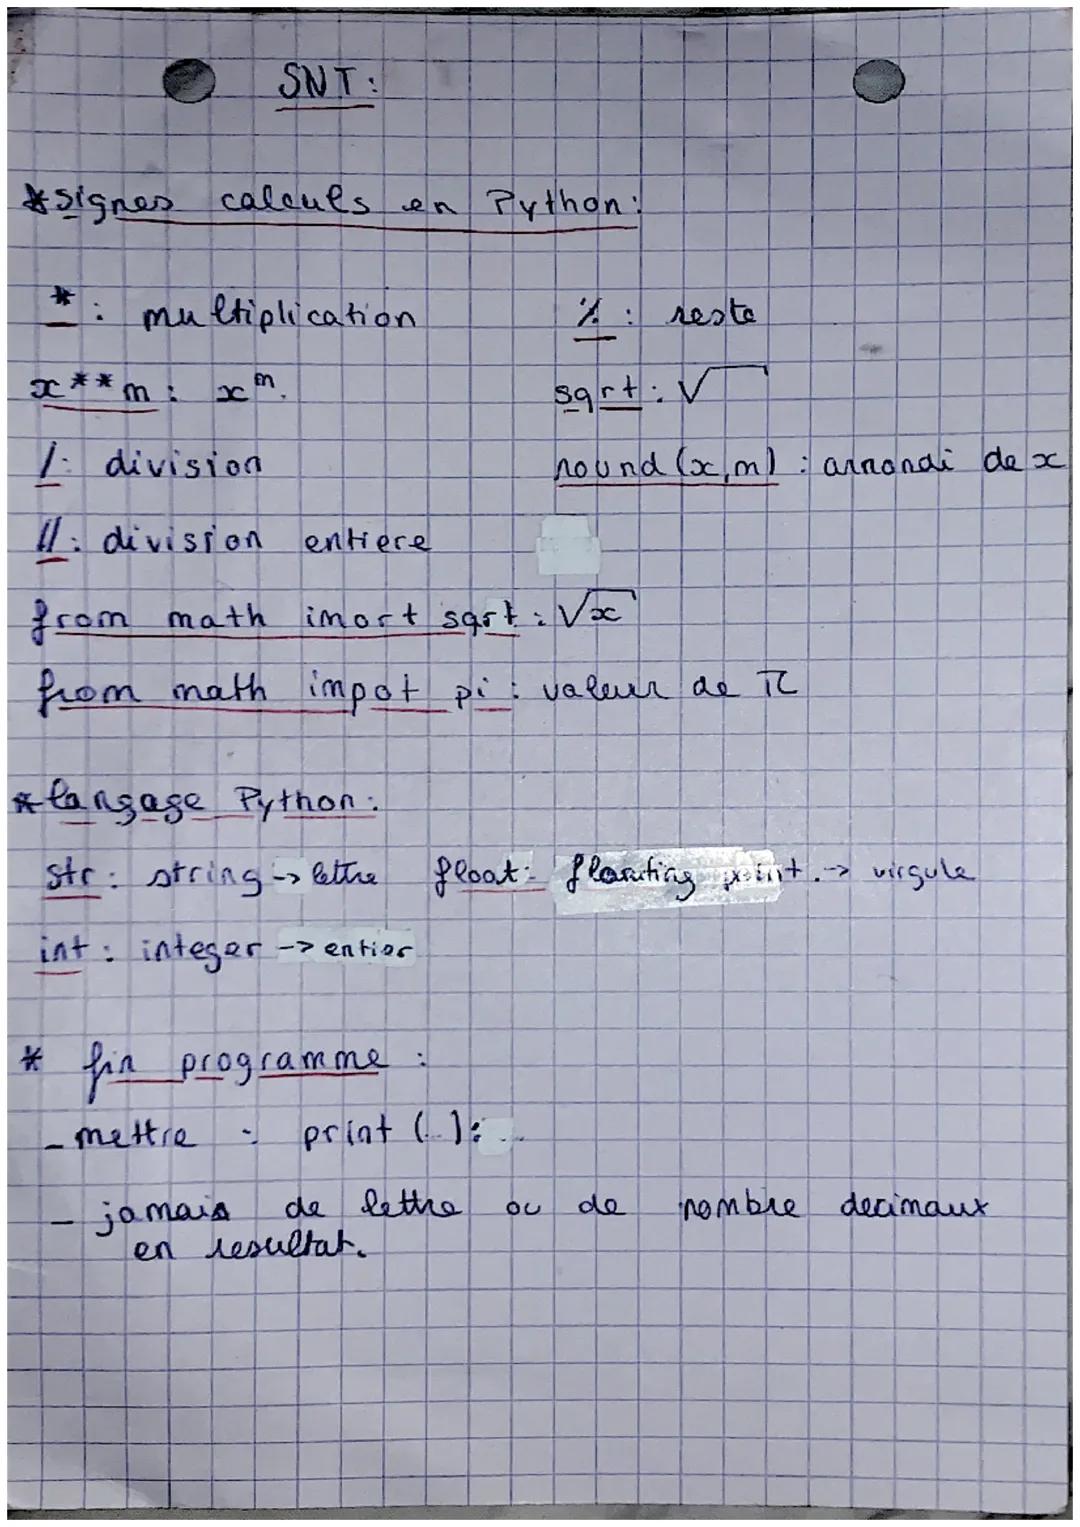 SNT:
*signes calculs en Python:
*: multiplication %: reste
x**m: x^m. sqrt: √
/: division round (x,m): arrondi de x
//: division entiere
from math imort sqrt: √x
from math impot pi: valeur de π
*langage Python:
str: string -> lettre float: floating point. -> virgule
int: integer -> entier
* fin programme:
- mettre : print (..):..
- jamais de lettre ou de nombre decimaux
en resultat.